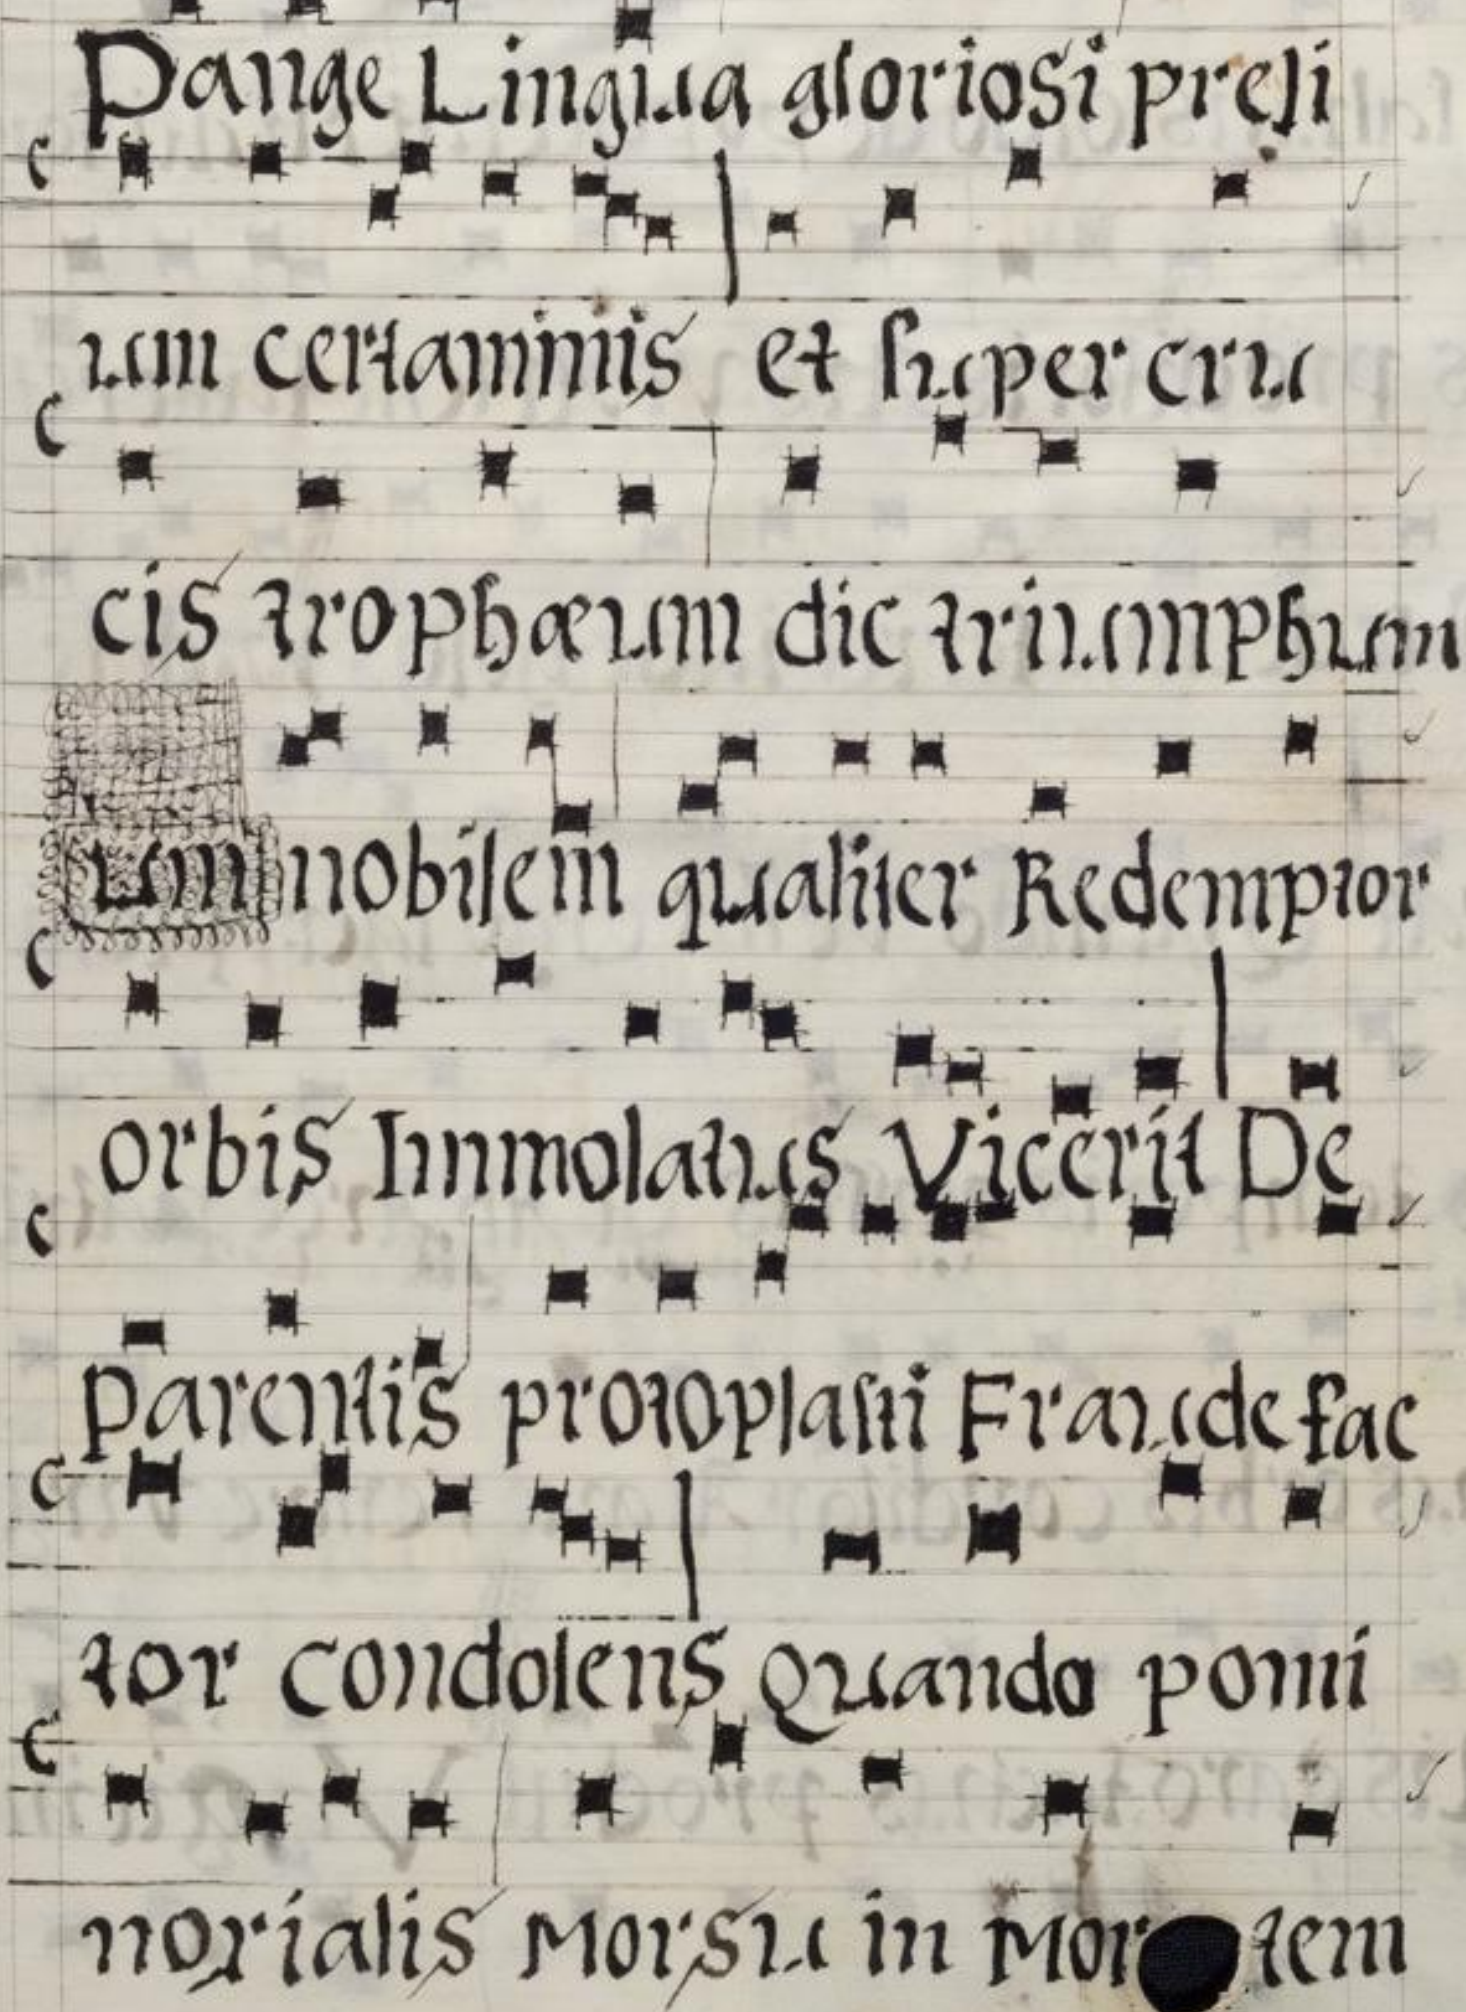 Pange Lingua gloriosi preli
um certaminis et super cru
cis trophæum dic triumphum
um nobilem qualiter Redemptor
orbis Immolatus Vicerit De
parentis protoplasti Fraude fac
tor condolens Quando pomi
noxialis Morsu in Mor tem